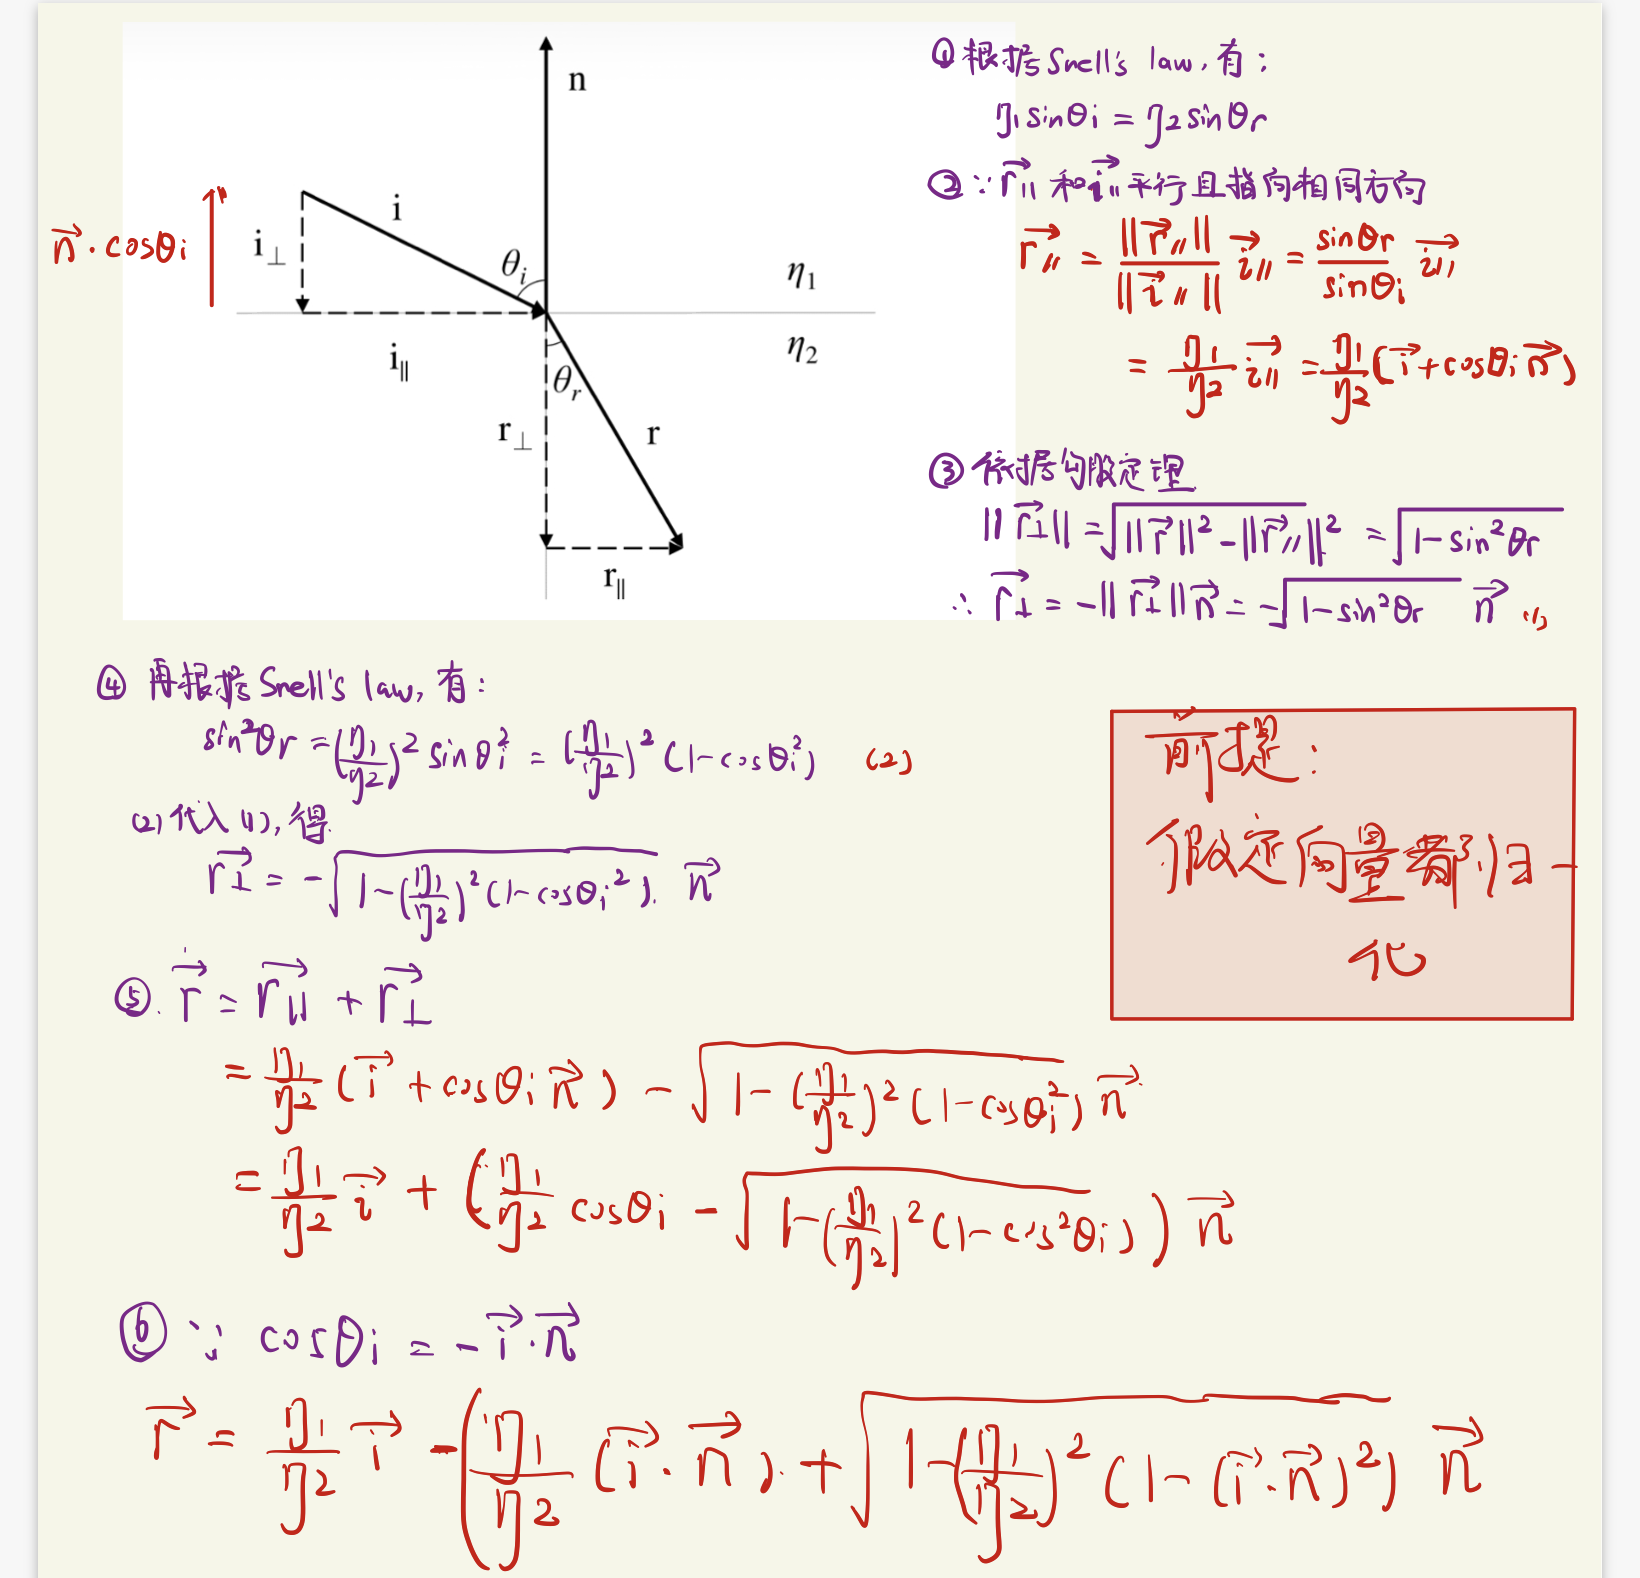 n
i
i⊥
θi
η1
i∥
η2
θr
r⊥
r
r∥
n⃗ · cosθi
① 根据 Snell's law, 有:
η1 sinθi = η2 sinθr
② ∵ r⃗∥ 和 i⃗∥ 平行且指向相同方向
r⃗∥ = ||r⃗∥|| / ||i⃗∥|| i⃗∥ = sinθr / sinθi i⃗∥
= η1/η2 i⃗∥ = η1/η2 (i⃗ + cosθi n⃗)
③ 依据勾股定理
||r⃗⊥|| = √(||r⃗||² - ||r⃗∥||²) = √(1 - sin²θr)
∴ r⃗⊥ = -||r⃗⊥|| n⃗ = -√(1 - sin²θr) n⃗ (1)
④ 再根据 Snell's law, 有:
sin²θr = (η1/η2)² sinθi² = (η1/η2)² (1 - cosθi²) (2)
(2) 代入 (1), 得
r⃗⊥ = -√(1 - (η1/η2)² (1 - cosθi²)) n⃗
前提:
假定向量都归一
化
⑤. r⃗ = r⃗∥ + r⃗⊥
= η1/η2 (i⃗ + cosθi n⃗) - √(1 - (η1/η2)² (1 - cosθi²)) n⃗
= η1/η2 i⃗ + (η1/η2 cosθi - √(1 - (η1/η2)² (1 - cos²θi))) n⃗
⑥ ∵ cosθi = -i⃗ · n⃗
r⃗ = η1/η2 i⃗ - (η1/η2 (i⃗ · n⃗) + √(1 - (η1/η2)² (1 - (i⃗ · n⃗)²)) n⃗